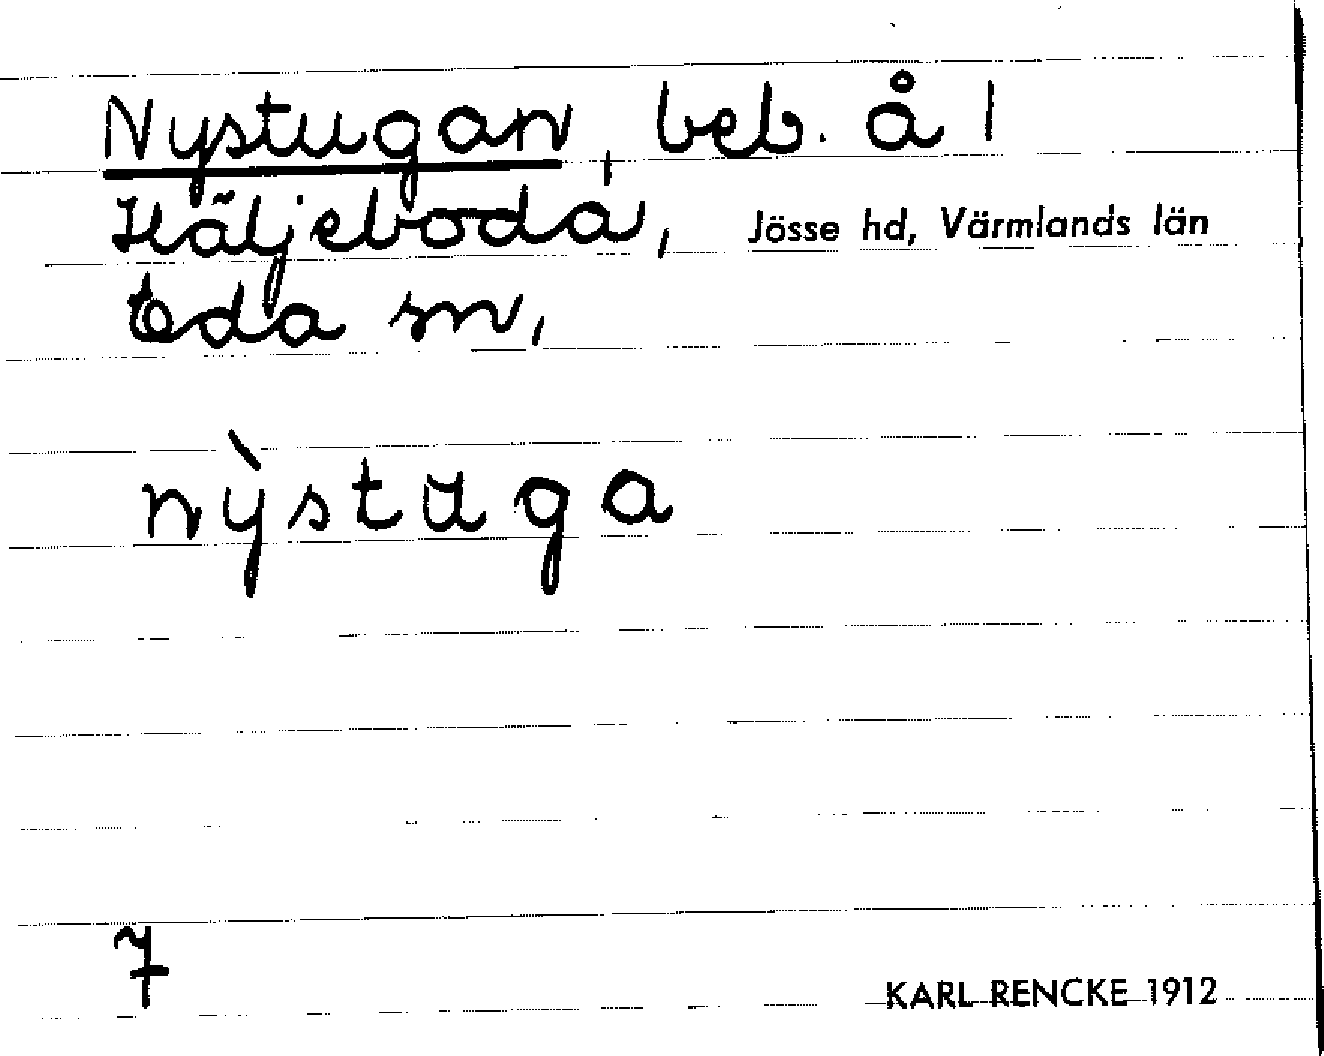 Nystugan, beb. å 1
Häljeboda, Jösse hd, Värmlands län
Eda sn,
nỳstuga
7
KARL RENCKE 1912